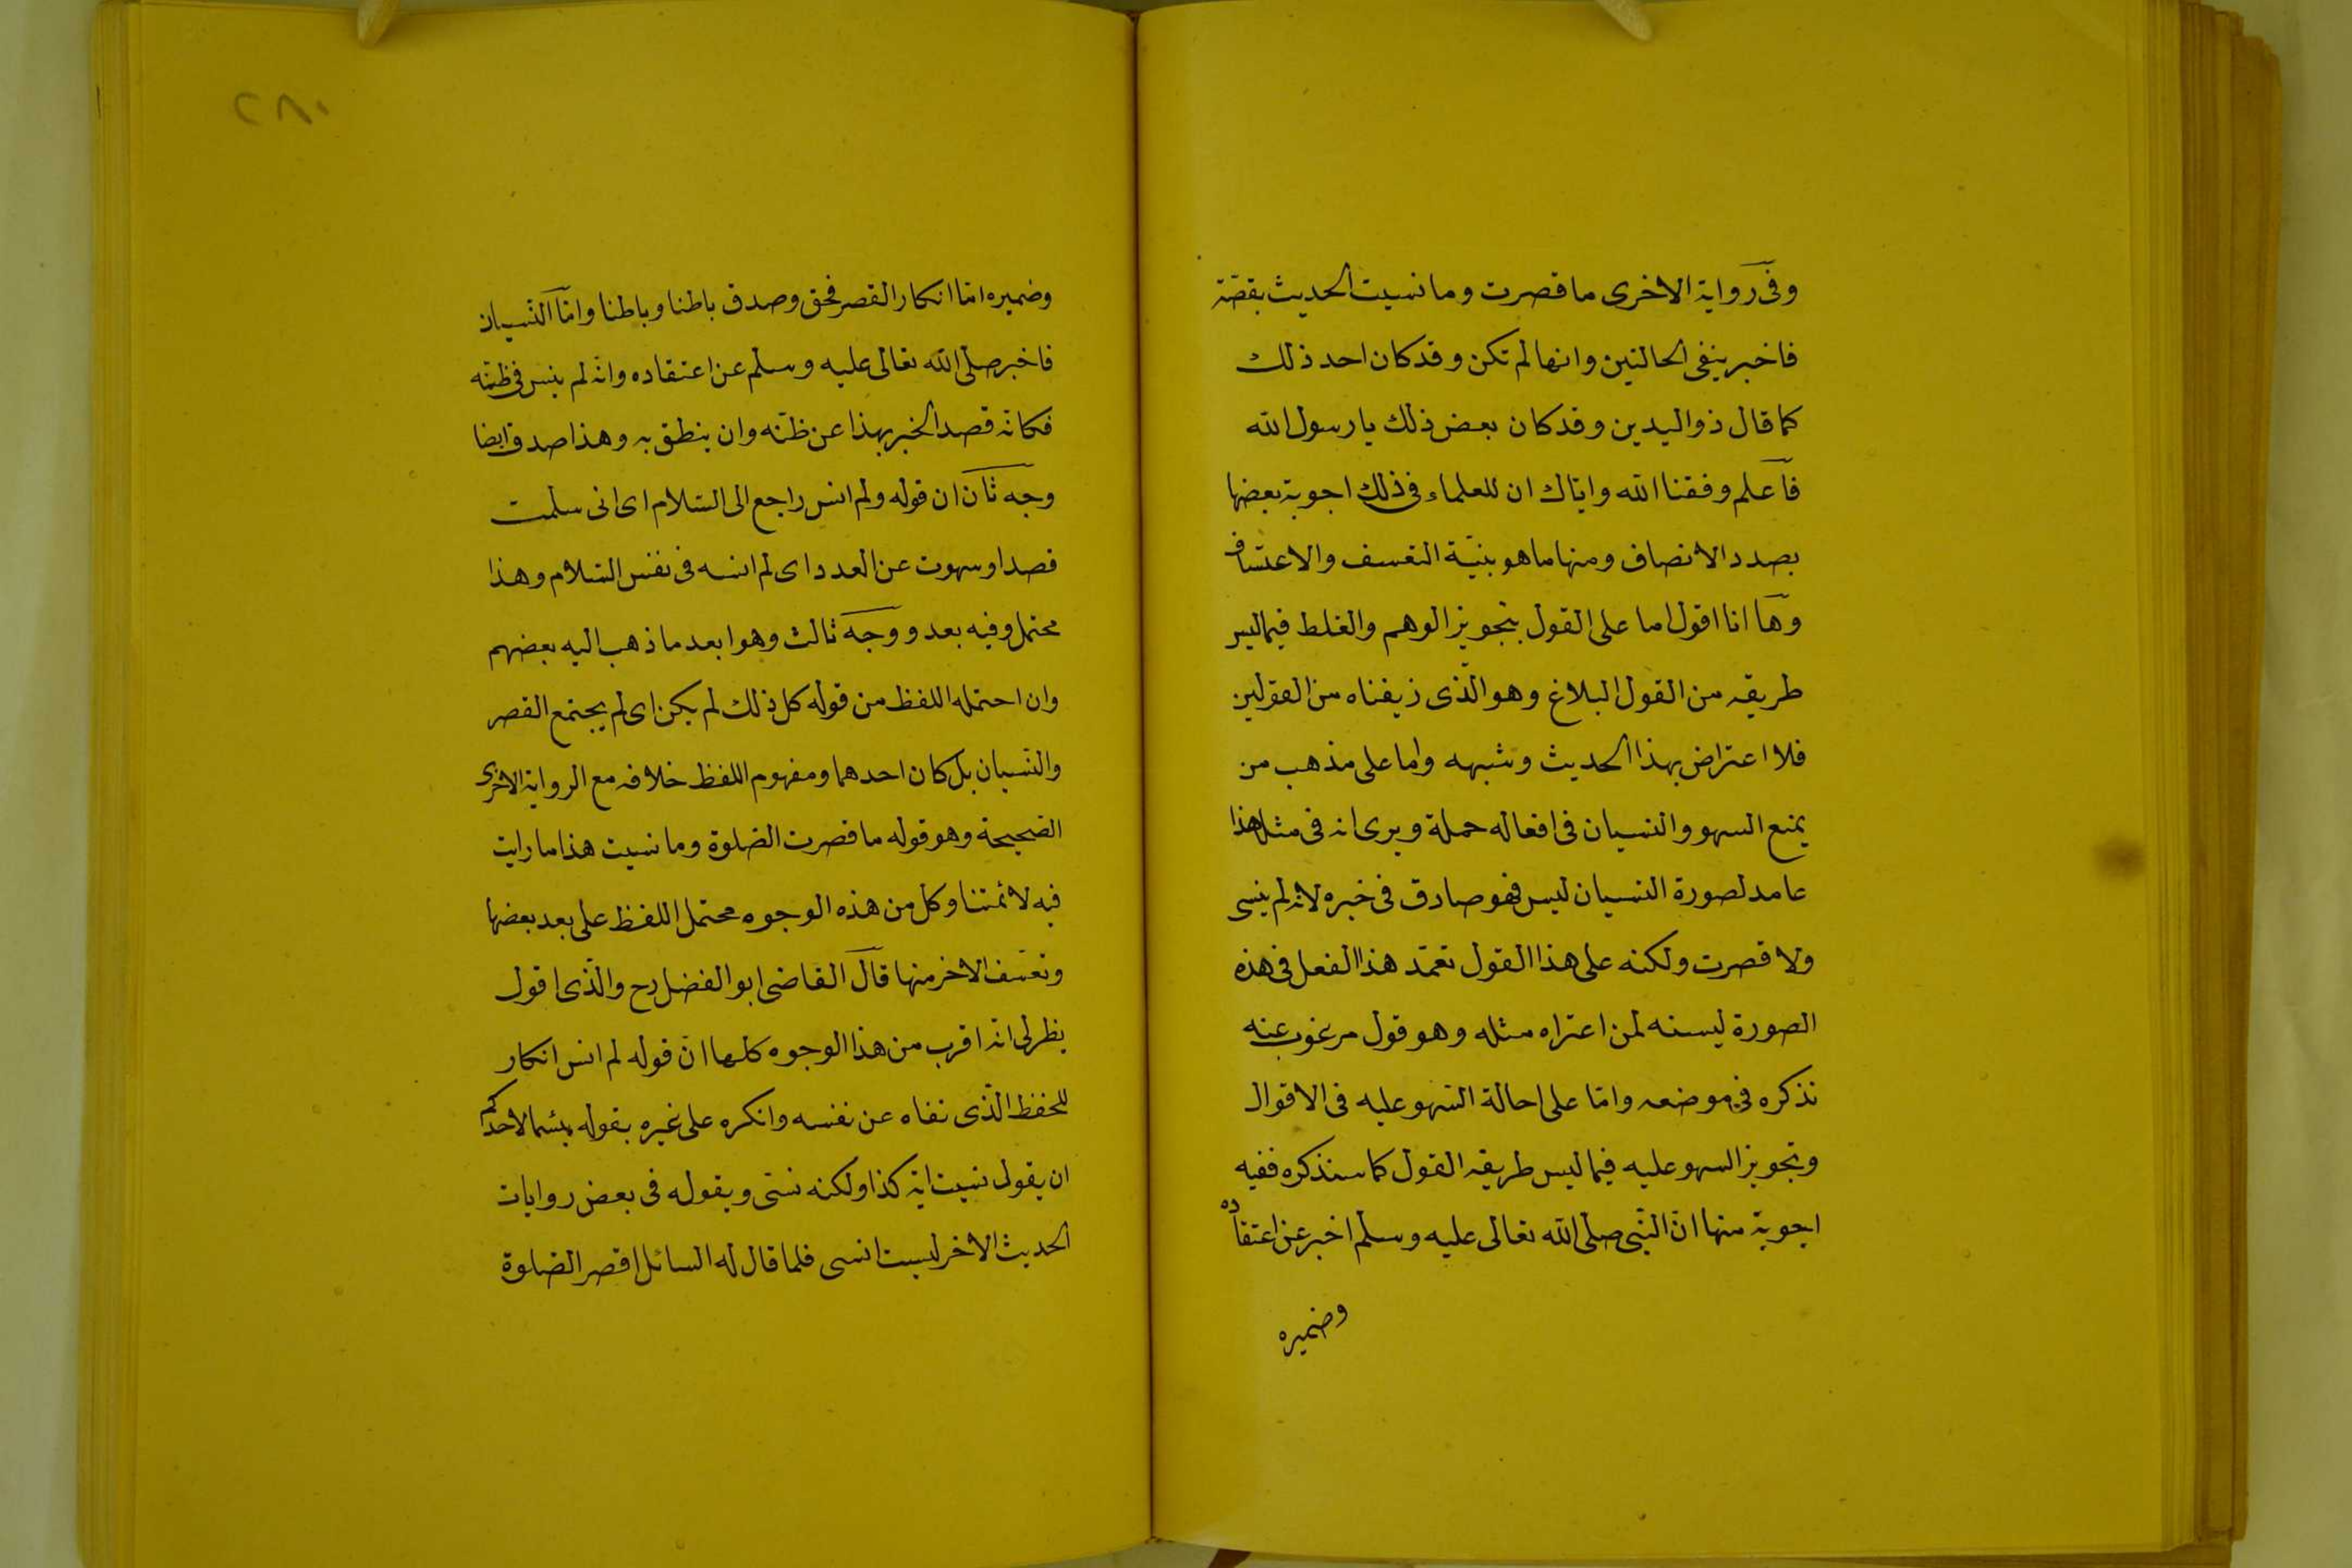 وفى رواية الاخرى ما قصرت وما نسيت الحديث بقصّته
فاخبر بنفى الحالتين وانها لم تكن وقد كان احد ذلك
كما قال ذو اليدين وقد كان بعض ذلك يا رسول الله
فاعلم وفقنا الله واياك ان للعلماء فى ذلك اجوبة بعضها
بصدد الانصاف ومنها ما هو بنيّة التعسف والاعتساف
وها انا اقول اما على القول بتجويز الوهم والغلط فيما ليس
طريقه من القول البلاغ وهو الّذى زيفناه من القولين
فلا اعتراض بهذا الحديث وشبهه واما على مذهب من
يمنع السهو والنسيان فى افعاله حملة ويرى انه فى مثل هذا
عامد لصورة النسيان ليس فهو صادق فى خبره لانه لم ينسى
ولا قصرت ولكنه على هذا القول تعمّد هذا الفعل فى هذه
الصورة ليسنه لمن اعتراه مثله وهو قول مرغوب عنه
نذكره فى موضعه وامّا على احالة السّهو عليه فى الاقوال
وتجويز السهو عليه فيما ليس طريقه القول كما سنذكره ففيه
اجوبة منها انّ النّبى صلّى الله تعالى عليه وسلم اخبر عن اعتقاده
وضميره
٢٨٠
وضميره امّا انكار القصر فحق وصدق باطنا وباطنا وامّا النّسيان
فاخبر صلّى الله تعالى عليه وسلم عن اعتقاده وانّه لم ينس فى ظنّه
فكانّه قصد الخبر بهذا عن ظنّه وان ينطق به وهذا صدق ايضا
وجه ثان ان قوله ولم انس راجع الى السّلام اى انى سلمت
قصدا وسهوت عن العدد اى لم انسه فى نفس السّلام وهذا
محتمل وفيه بعد ووجه ثالث وهو ابعد ما ذهب اليه بعضهم
وان احتمله اللفظ من قوله كل ذلك لم يكن اى لم يجتمع القصر
والنّسيان بل كان احدهما ومفهوم اللفظ خلافه مع الرواية الاخرى
الصّحيحة وهو قوله ما قصرت الصّلوة وما نسيت هذا ما رايت
فيه لائمتنا وكل من هذه الوجوه محتمل اللفظ على بعد بعضها
وتعسّف الاخر منها قال القاضى ابو الفضل رح والّذى اقول
يظر لى انّه اقرب من هذا الوجوه كلها انّ قوله لم انس انكار
للحفظ الّذى نفاه عن نفسه وانكره على غيره بقوله بئسما لاحدكم
ان يقول نسيت اية كذا ولكنه نسّى وبقوله فى بعض روايات
الحديث الاخر ليست انسى فلما قال له السائل اقصر الصّلوة